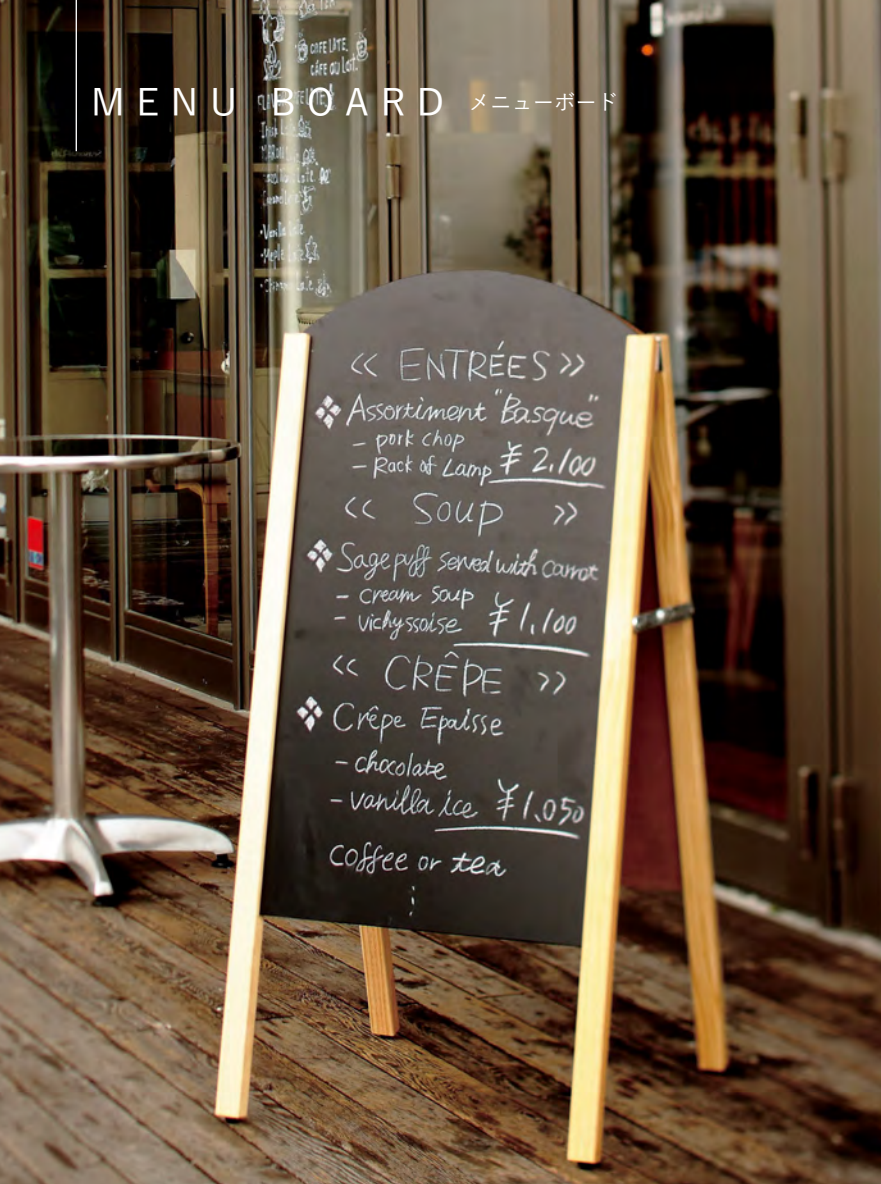 MENU BOARD メニューボード
CAFE LATE.
CAFE au Lait.
<< ENTRÉES >>
Assortiment "Basque"
- pork chop
- Rack of Lamp ¥2,100
<< Soup >>
Sage puff served with carrot
- cream soup
- vichyssoise ¥1,100
<< CRÊPE >>
Crêpe Epaisse
- chocolate
- vanilla ice ¥1,050
coffee or tea